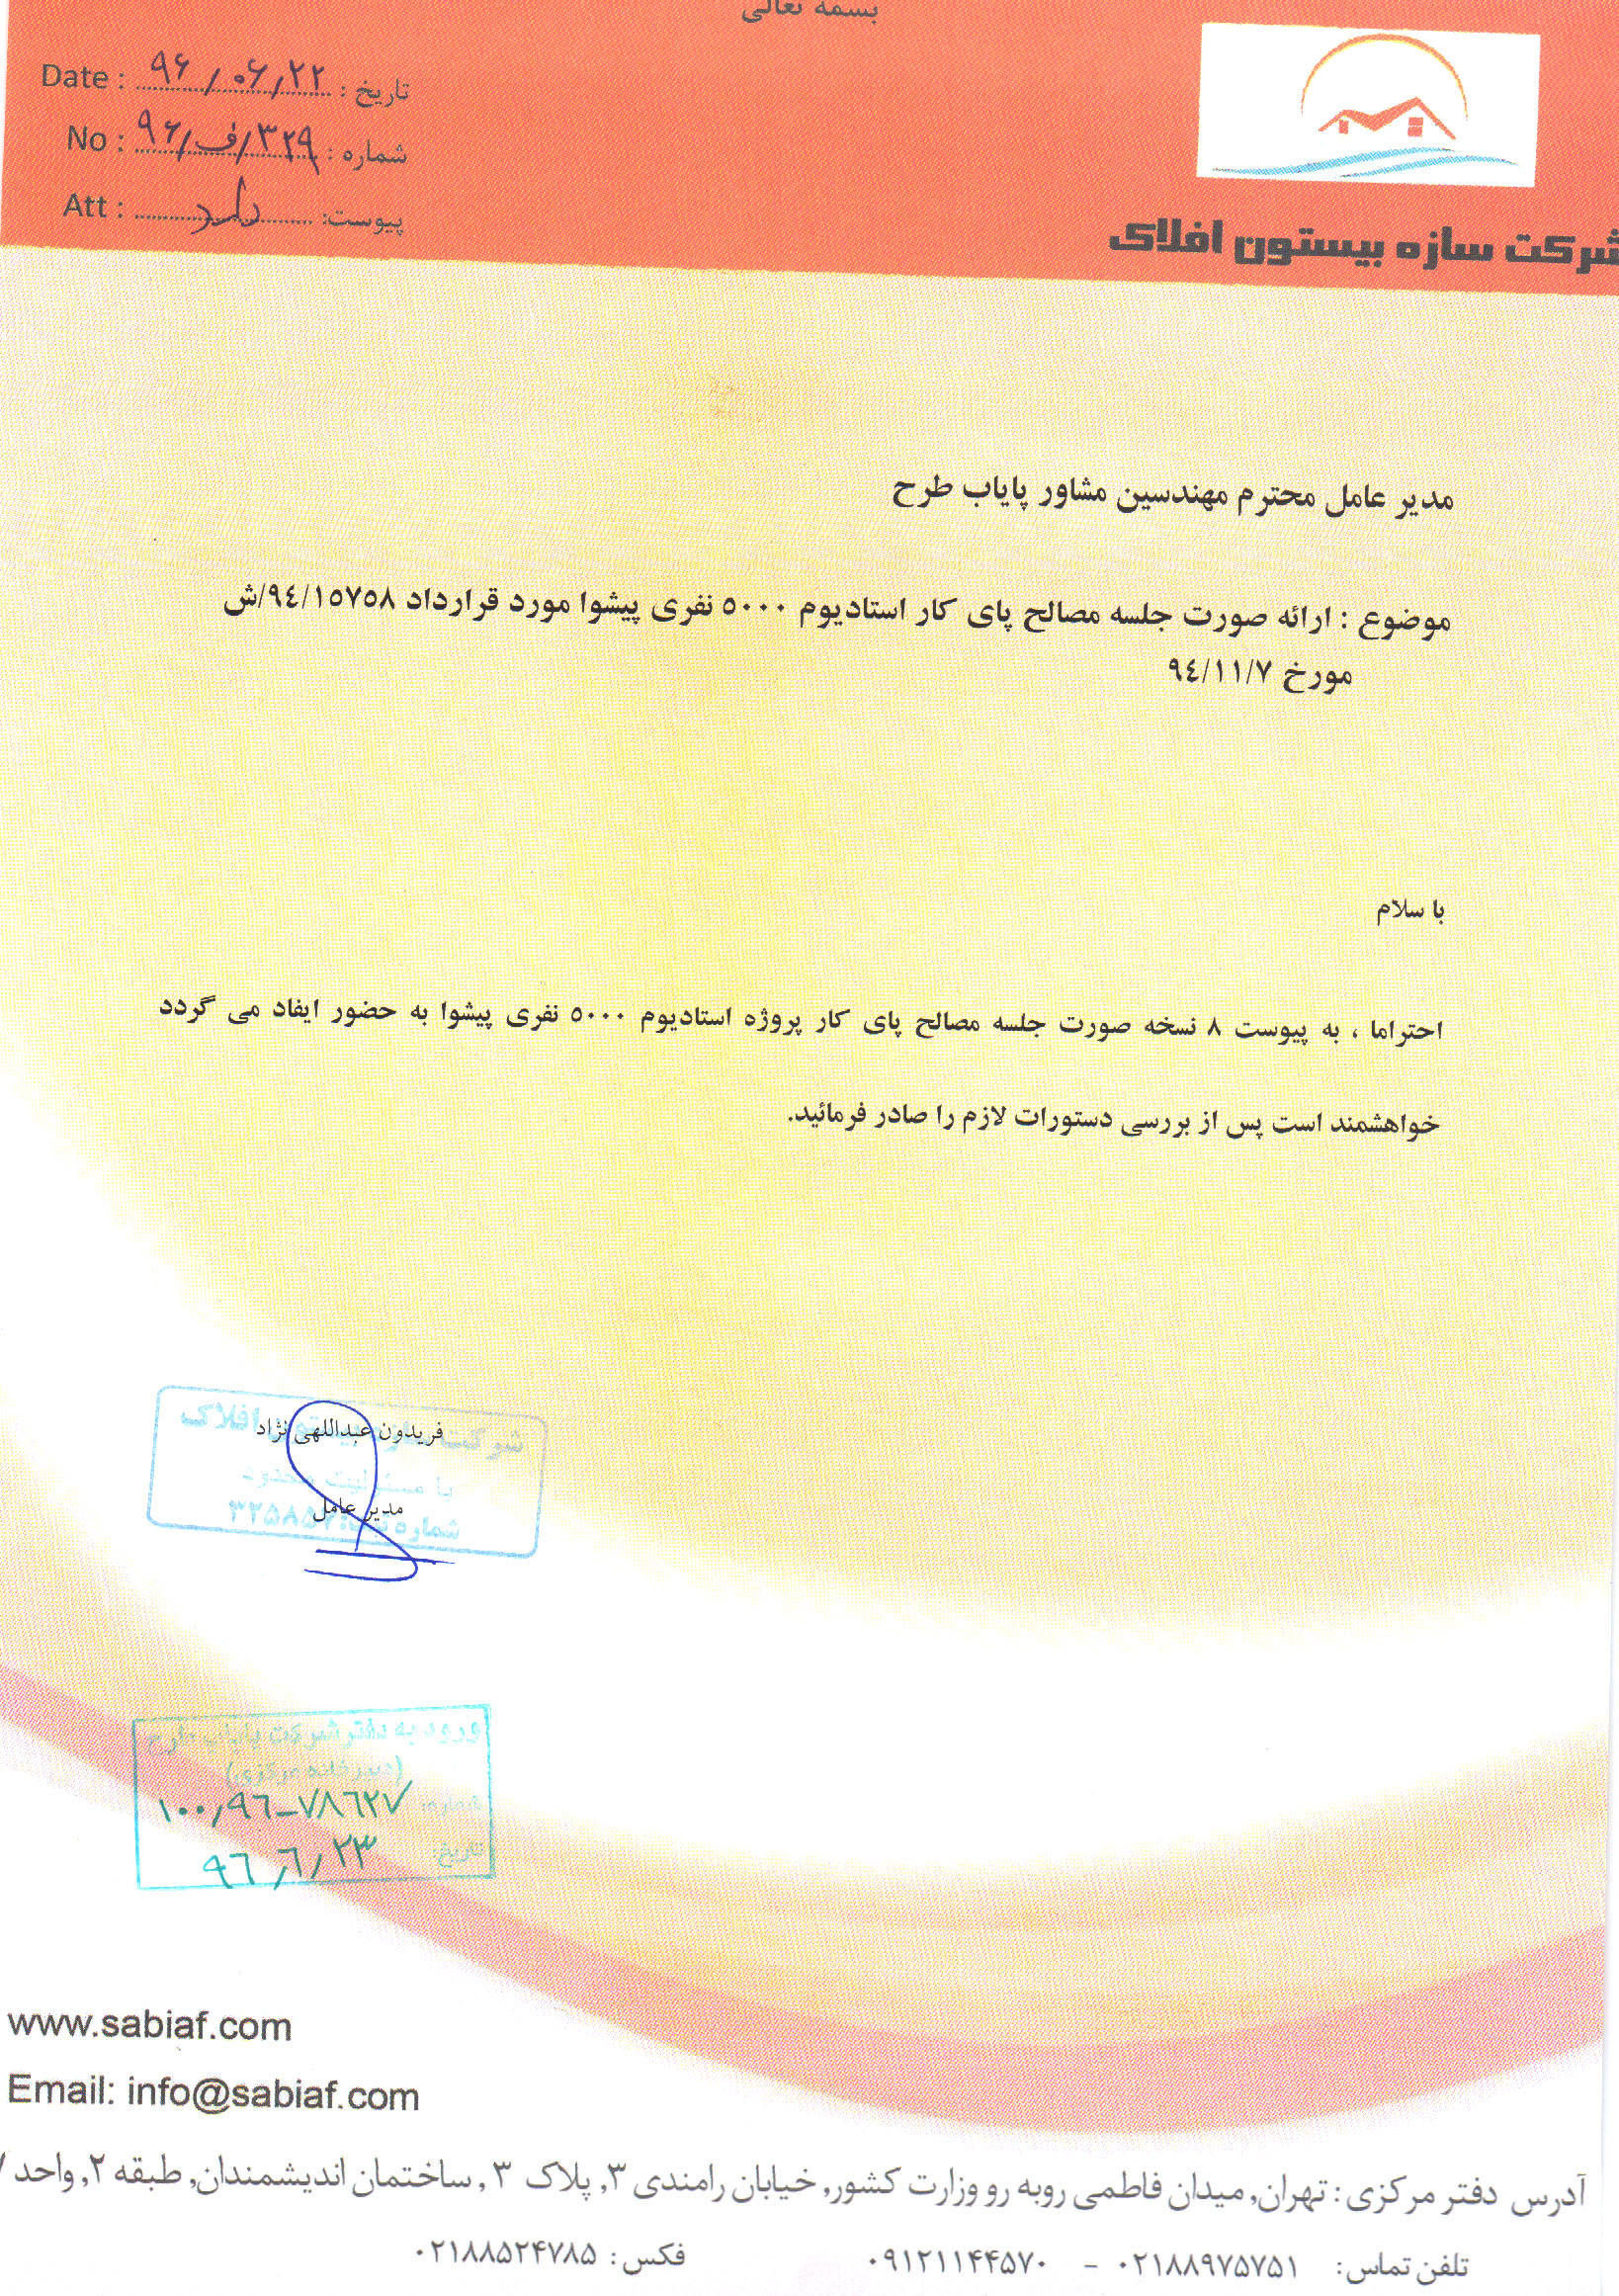 بسمه تعالی
تاریخ : ۹۶/۰۶/۲۲ Date :
شماره : ۳۲۹/ف/۹۶ No :
پیوست: دارد Att :
شرکت سازه بیستون افلاک
مدیر عامل محترم مهندسین مشاور پایاب طرح
موضوع : ارائه صورت جلسه مصالح پای کار استادیوم ٥٠٠٠ نفری پیشوا مورد قرارداد ٩٤/١٥٧٥٨/ش
مورخ ٩٤/١١/٧
با سلام
احتراما ، به پیوست ٨ نسخه صورت جلسه مصالح پای کار پروژه استادیوم ٥٠٠٠ نفری پیشوا به حضور ایفاد می گردد
خواهشمند است پس از بررسی دستورات لازم را صادر فرمائید.
شرکت سازه بیستون افلاک
فریدون عبداللهی نژاد
با مسئولیت محدود
مدیر عامل
شماره ثبت: ۳۲۵۸۵۷
ورود به دفتر شرکت پایاب طرح
(دبیرخانه مرکزی)
شماره: ۱۰۰/۹۶-۷۸۶۲۷
تاریخ: ۹۶/۶/۲۳
www.sabiaf.com
Email: info@sabiaf.com
آدرس دفتر مرکزی : تهران, میدان فاطمی روبه رو وزارت کشور, خیابان رامندی ۳, پلاک ۳ , ساختمان اندیشمندان, طبقه ۲, واحد
تلفن تماس: ۰۲۱۸۸۹۷۵۷۵۱ - ۰۹۱۲۱۱۴۴۵۷۰ فکس : ۰۲۱۸۸۵۲۴۷۸۵